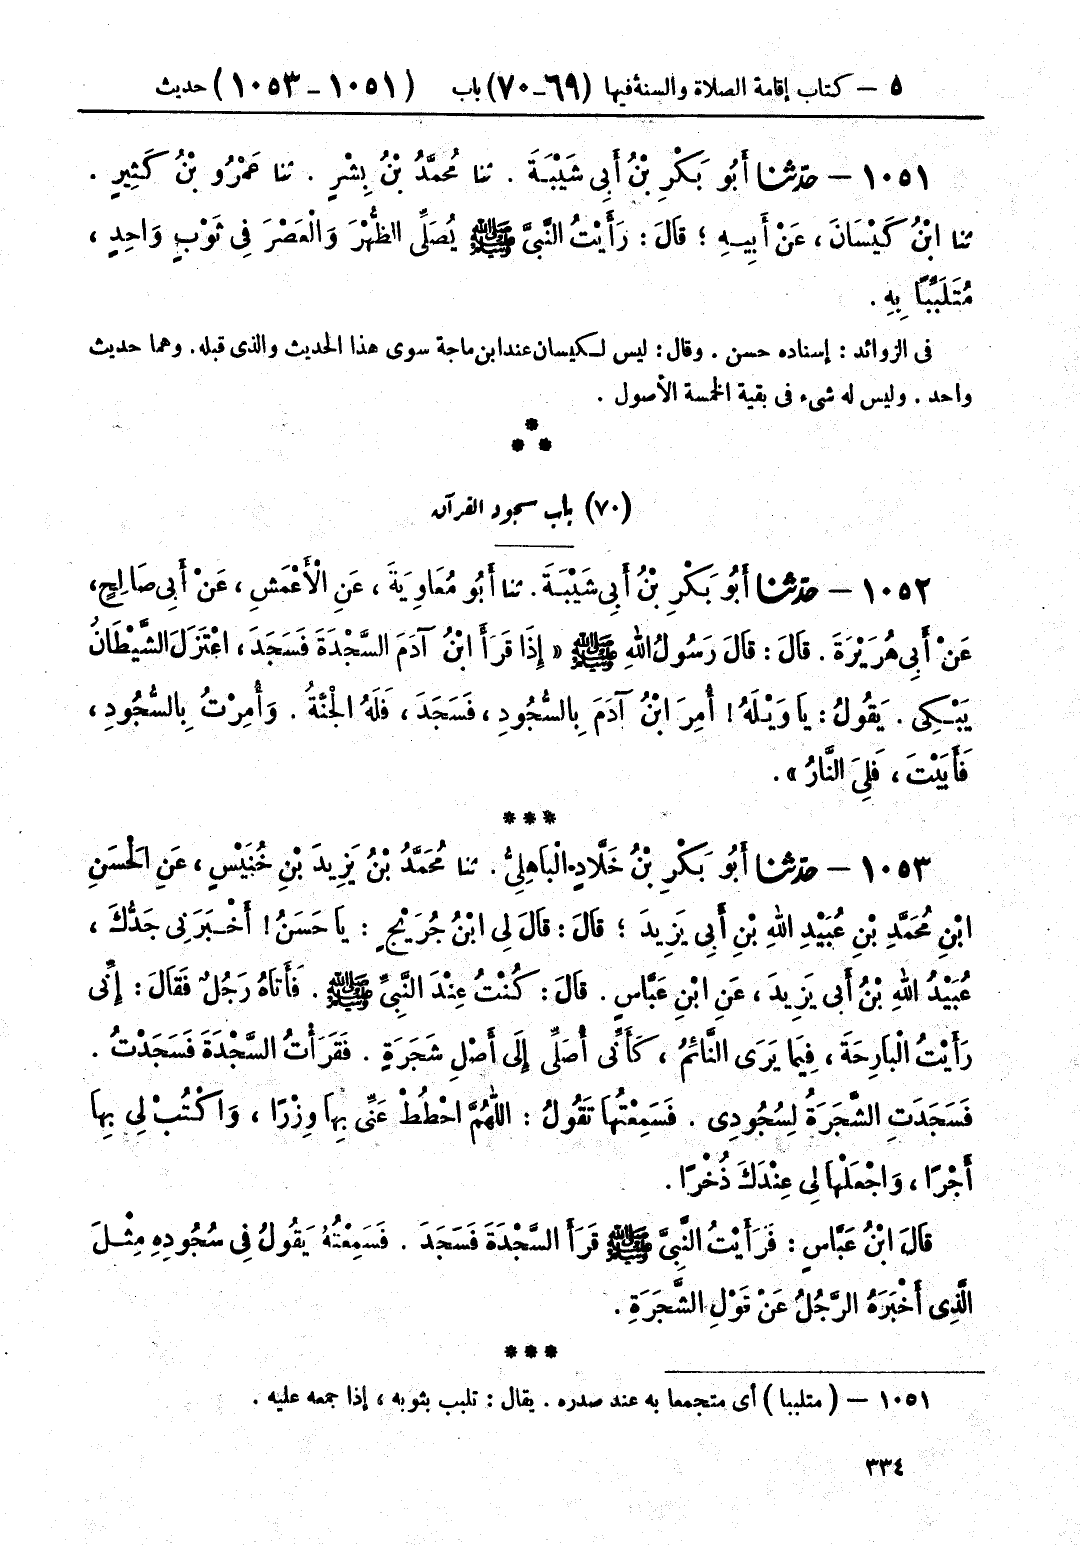 ٥ – كتاب إقامة الصلاة والسنة فيها (٦٩-٧٠) باب (١٠٥١ - ١٠٥٣) حديث
١٠٥١ – حَدَّثَنَا أَبُو بَكْرِ بْنُ أَبِي شَيْبَةَ . ثنا مُحَمَّدُ بْنُ بِشْرٍ . ثنا عَمْرُو بْنُ كَثِيرٍ .
ثنا ابْنُ كَيْسَانَ ، عَنْ أَبِيهِ ؛ قَالَ : رَأَيْتُ النَّبِيَّ ﷺ يُصَلِّي الظُّهْرَ وَالْعَصْرَ فِي ثَوْبٍ وَاحِدٍ ،
مُتَلَبِّبًا بِهِ .
فى الزوائد : إسناده حسن . وقال : ليس لكيسان عند ابن ماجة سوى هذا الحديث والذى قبله . وهما حديث
واحد . وليس له شىء فى بقية الخمسة الأصول .
***
(٧٠) باب سجود القرآن
١٠٥٢ – حَدَّثَنَا أَبُو بَكْرِ بْنُ أَبِي شَيْبَةَ . ثنا أَبُو مُعَاوِيَةَ ، عَنِ الْأَعْمَشِ ، عَنْ أَبِي صَالِحٍ ،
عَنْ أَبِي هُرَيْرَةَ . قَالَ : قَالَ رَسُولُ اللهِ ﷺ « إِذَا قَرَأَ ابْنُ آدَمَ السَّجْدَةَ فَسَجَدَ ، اعْتَزَلَ الشَّيْطَانُ
يَبْكِي . يَقُولُ : يَا وَيْلَهُ ! أُمِرَ ابْنُ آدَمَ بِالسُّجُودِ ، فَسَجَدَ ، فَلَهُ الْجَنَّةُ . وَأُمِرْتُ بِالسُّجُودِ ،
فَأَبَيْتُ ، فَلِيَ النَّارُ » .
***
١٠٥٣ – حَدَّثَنَا أَبُو بَكْرِ بْنُ خَلَّادٍ الْبَاهِلِيُّ . ثنا مُحَمَّدُ بْنُ يَزِيدَ بْنِ خُنَيْسٍ ، عَنِ الْحَسَنِ
ابْنِ مُحَمَّدِ بْنِ عُبَيْدِ اللهِ بْنِ أَبِي يَزِيدَ ؛ قَالَ : قَالَ لِي ابْنُ جُرَيْجٍ : يَا حَسَنُ ! أَخْبَرَنِي جَدُّكَ ،
عُبَيْدُ اللهِ بْنُ أَبِي يَزِيدَ ، عَنِ ابْنِ عَبَّاسٍ . قَالَ : كُنْتُ عِنْدَ النَّبِيِّ ﷺ . فَأَتَاهُ رَجُلٌ فَقَالَ : إِنِّي
رَأَيْتُ الْبَارِحَةَ ، فِيمَا يَرَى النَّائِمُ ، كَأَنِّي أُصَلِّي إِلَى أَصْلِ شَجَرَةٍ . فَقَرَأْتُ السَّجْدَةَ فَسَجَدْتُ .
فَسَجَدَتِ الشَّجَرَةُ لِسُجُودِي . فَسَمِعْتُهَا تَقُولُ : اللَّهُمَّ احْطُطْ عَنِّي بِهَا وِزْرًا ، وَاكْتُبْ لِي بِهَا
أَجْرًا ، وَاجْعَلْهَا لِي عِنْدَكَ ذُخْرًا .
قَالَ ابْنُ عَبَّاسٍ : فَرَأَيْتُ النَّبِيَّ ﷺ قَرَأَ السَّجْدَةَ فَسَجَدَ . فَسَمِعْتُهُ يَقُولُ فِي سُجُودِهِ مِثْلَ
الَّذِي أَخْبَرَهُ الرَّجُلُ عَنْ قَوْلِ الشَّجَرَةِ .
***
١٠٥١ – ( متلببا ) أى متجمعا به عند صدره . يقال : تلبب بثوبه ، إذا جمعه عليه .
٣٣٤